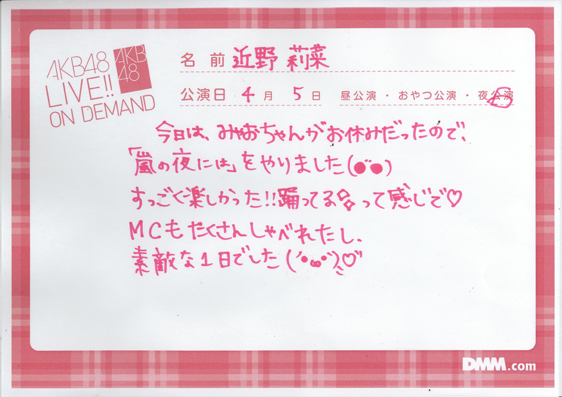 AKB48
LIVE!!
ON DEMAND
AKB
48
名前 近野 莉菜
公演日 4月 5日 昼公演・おやつ公演・夜公演
今日は、みおちゃんがお休みだったので、
「嵐の夜には」をやりました(●ˇ●)
すっごく楽しかった!!踊ってる って感じで♡
MCもたくさんしゃべれたし、
素敵な1日でした(´•ω•`)♡
DMM.com